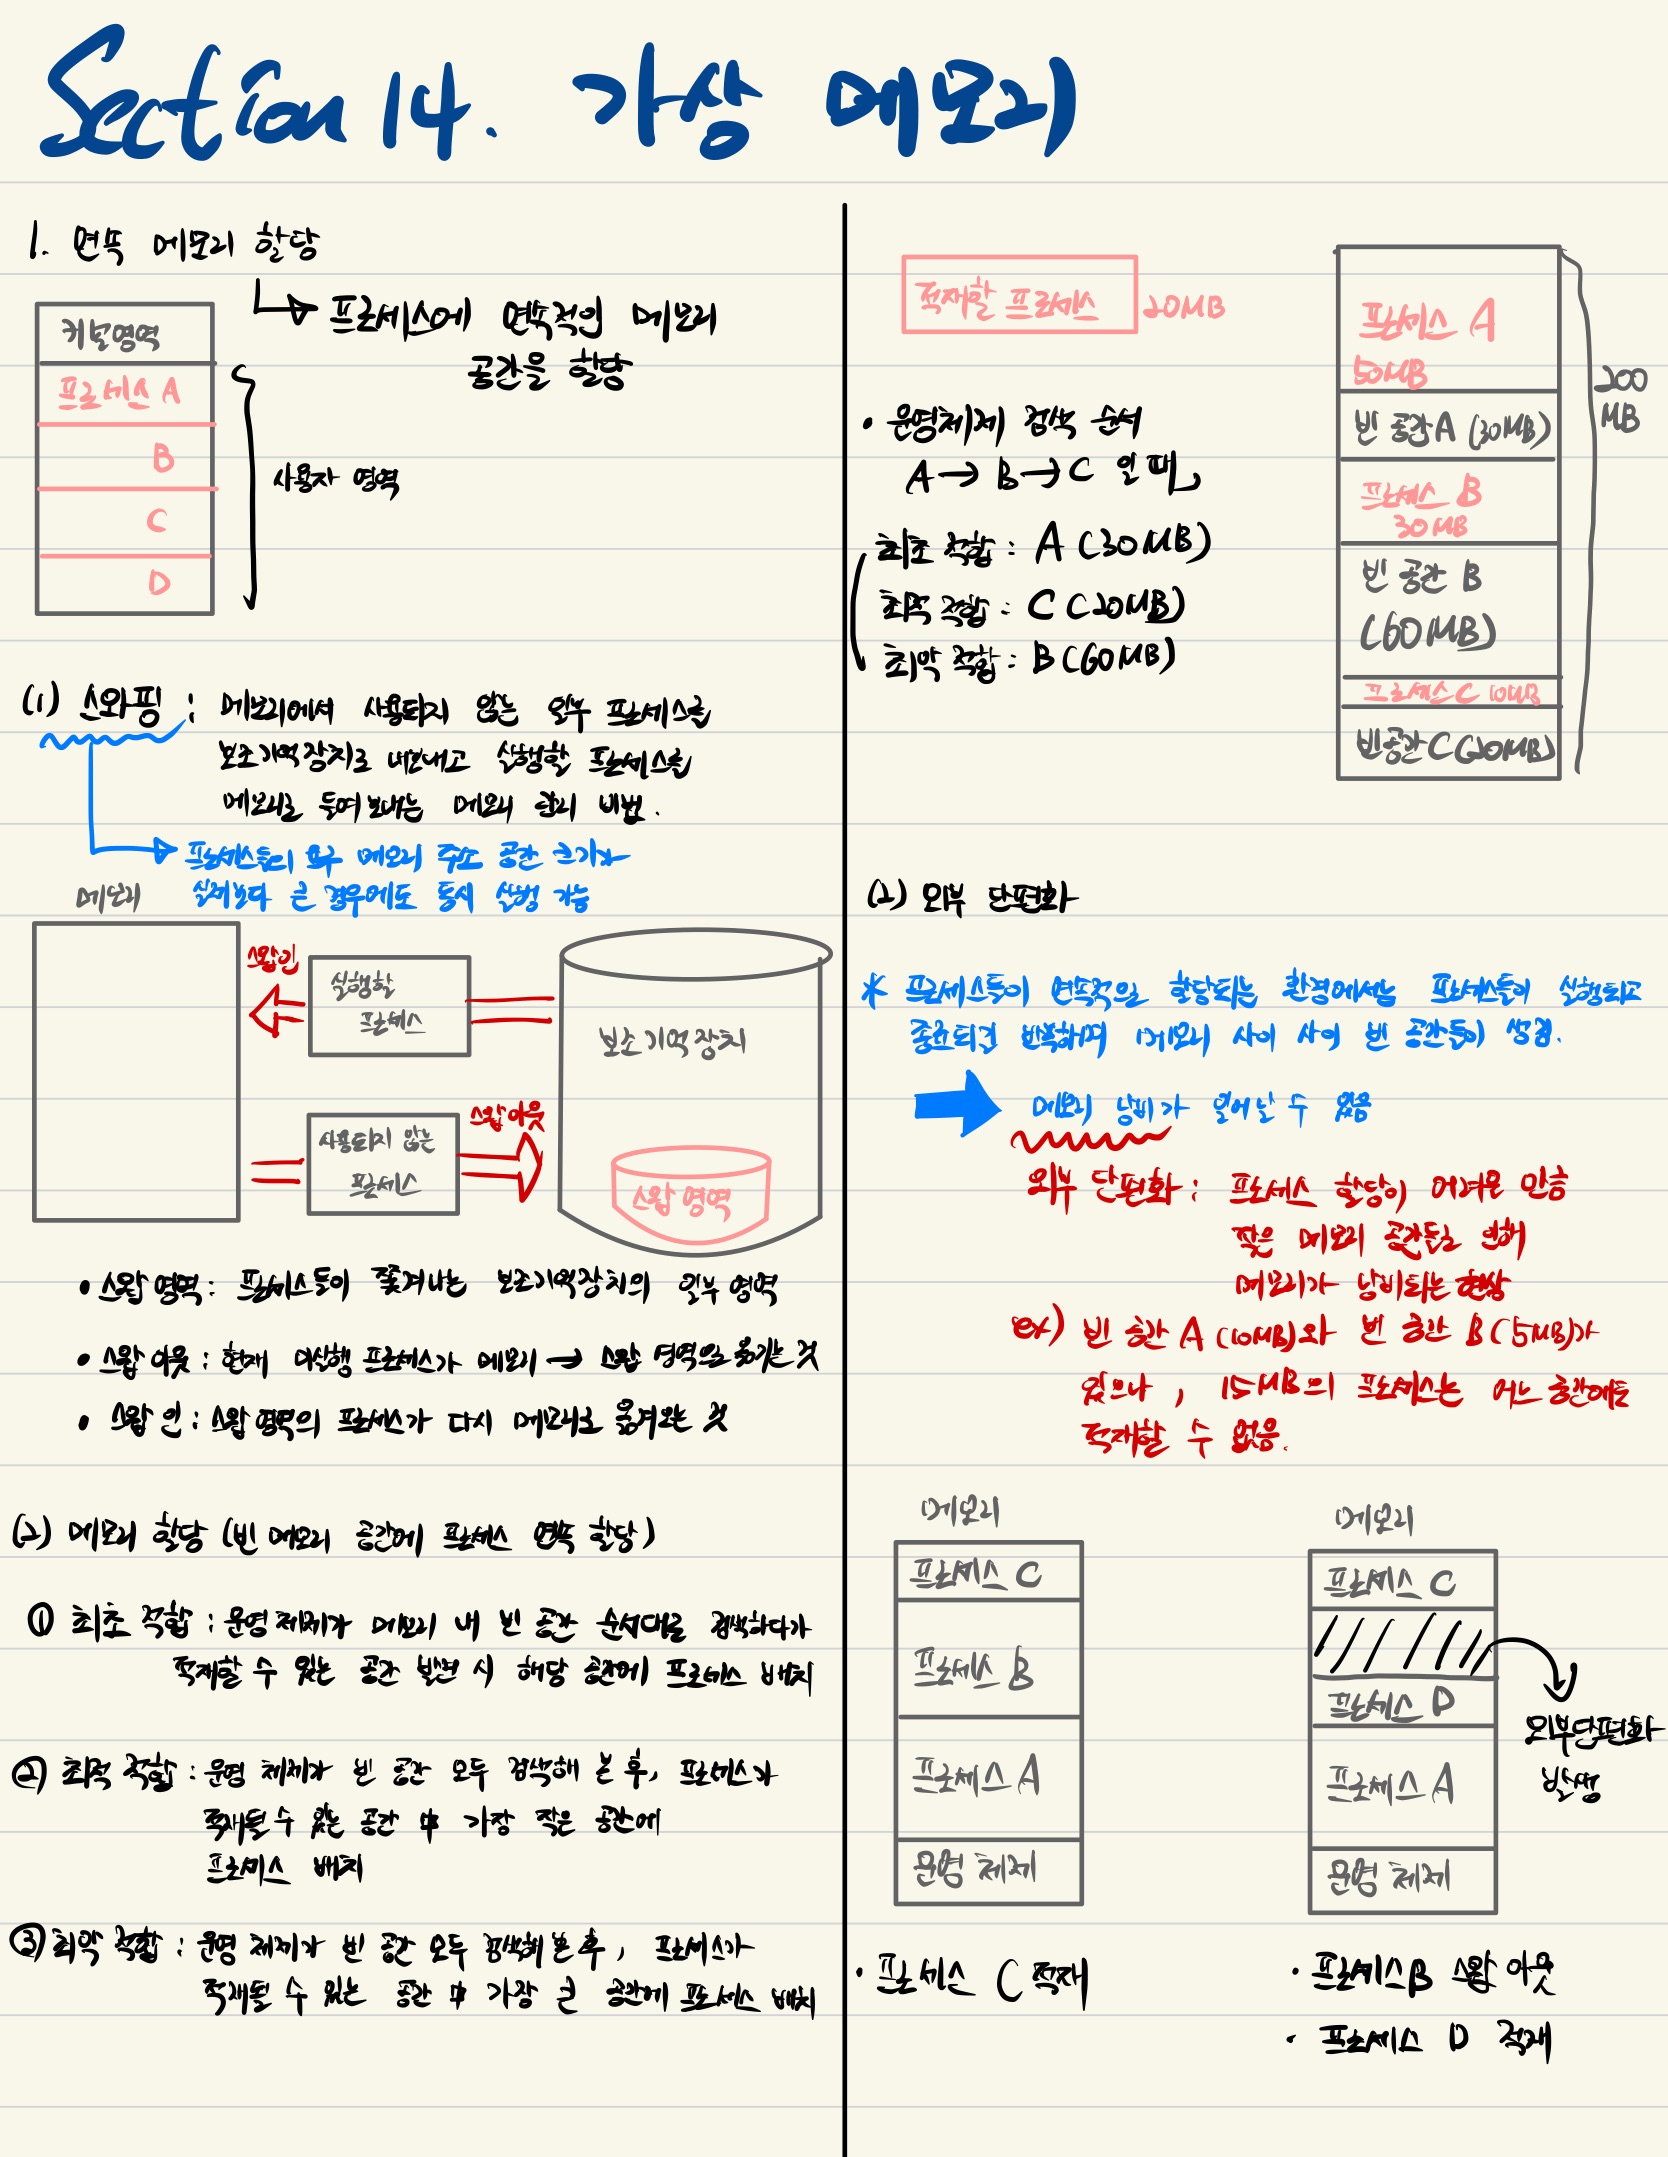 Section 14. 가상 메모리
1. 연속 메모리 할당
프로세스에 연속적인 메모리
공간을 할당
커널영역
프로세스 A
B
C
D
사용자 영역
(1) 스와핑 : 메모리에서 사용되지 않는 일부 프로세스를
보조기억장치로 내보내고 실행할 프로세스를
메모리로 들여보내는 메모리 관리 비법.
프로세스들의 요구 메모리 주소 공간 크기가
실제보다 큰 경우에도 동시 실행 가능
메모리
스왑인
실행할
프로세스
보조기억장치
사용되지 않는
프로세스
스왑아웃
스왑 영역
• 스왑 영역 : 프로세스들이 쫓겨나는 보조기억장치의 일부 영역
• 스왑 아웃 : 현재 미실행 프로세스가 메모리 → 스왑 영역으로 옮기는 것
• 스왑 인 : 스왑 영역의 프로세스가 다시 메모리로 옮겨오는 것
(2) 메모리 할당 (빈 메모리 공간에 프로세스 연속 할당)
① 최초 적합 : 운영체제가 메모리 내 빈 공간 순서대로 검색하다가
적재할 수 있는 공간 발견 시 해당 공간에 프로세스 배치
② 최적 적합 : 운영 체제가 빈 공간 모두 검색해 본 후, 프로세스가
적재될 수 있는 공간 中 가장 작은 공간에
프로세스 배치
③ 최악 적합 : 운영 체제가 빈 공간 모두 검색해 본 후, 프로세스가
적재될 수 있는 공간 中 가장 큰 공간에 프로세스 배치
적재할 프로세스 20MB
• 운영체제 검색 순서
A → B → C 일 때,
최초 적합 : A (30MB)
최적 적합 : C (20MB)
최악 적합 : B (60MB)
프로세스 A
50MB
빈 공간 A (30MB)
프로세스 B
30MB
빈 공간 B
(60MB)
프로세스 C 10MB
빈공간 C (20MB)
200
MB
(2) 외부 단편화
* 프로세스들이 연속적으로 할당되는 환경에서는 프로세스들이 실행되고
종료되길 반복하며 메모리 사이 사이 빈 공간들이 생김.
메모리 낭비가 일어날 수 있음
외부 단편화 : 프로세스 할당이 어려운 만큼
작은 메모리 공간들로 인해
메모리가 낭비되는 현상
ex) 빈 공간 A (10MB)와 빈 공간 B (5MB)가
있으나, 15MB의 프로세스는 어느 공간에도
적재할 수 없음.
메모리
프로세스 C
프로세스 B
프로세스 A
운영 체제
• 프로세스 C 적재
메모리
프로세스 C
프로세스 D
프로세스 A
운영 체제
외부단편화
발생
• 프로세스 B 스왑 아웃
• 프로세스 D 적재